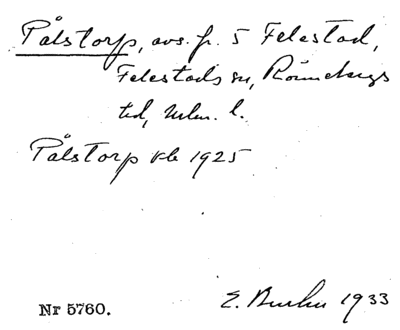 Pålstorp, avs. fr. 5 Felestad,
Felestads sn, Rönnebergs
hd, Mlm. l.
Pålstorp kb 1925
Nr 5760. E. 1933